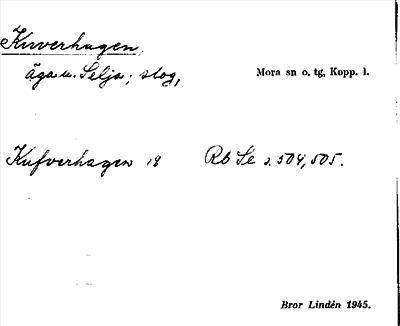 Kuverhagen,
äga u. Selja; slog,
Mora sn o. tg, Kopp. l.
Kufverhagen 18 Rb Se s. 504, 505.
Bror Lindén 1945.